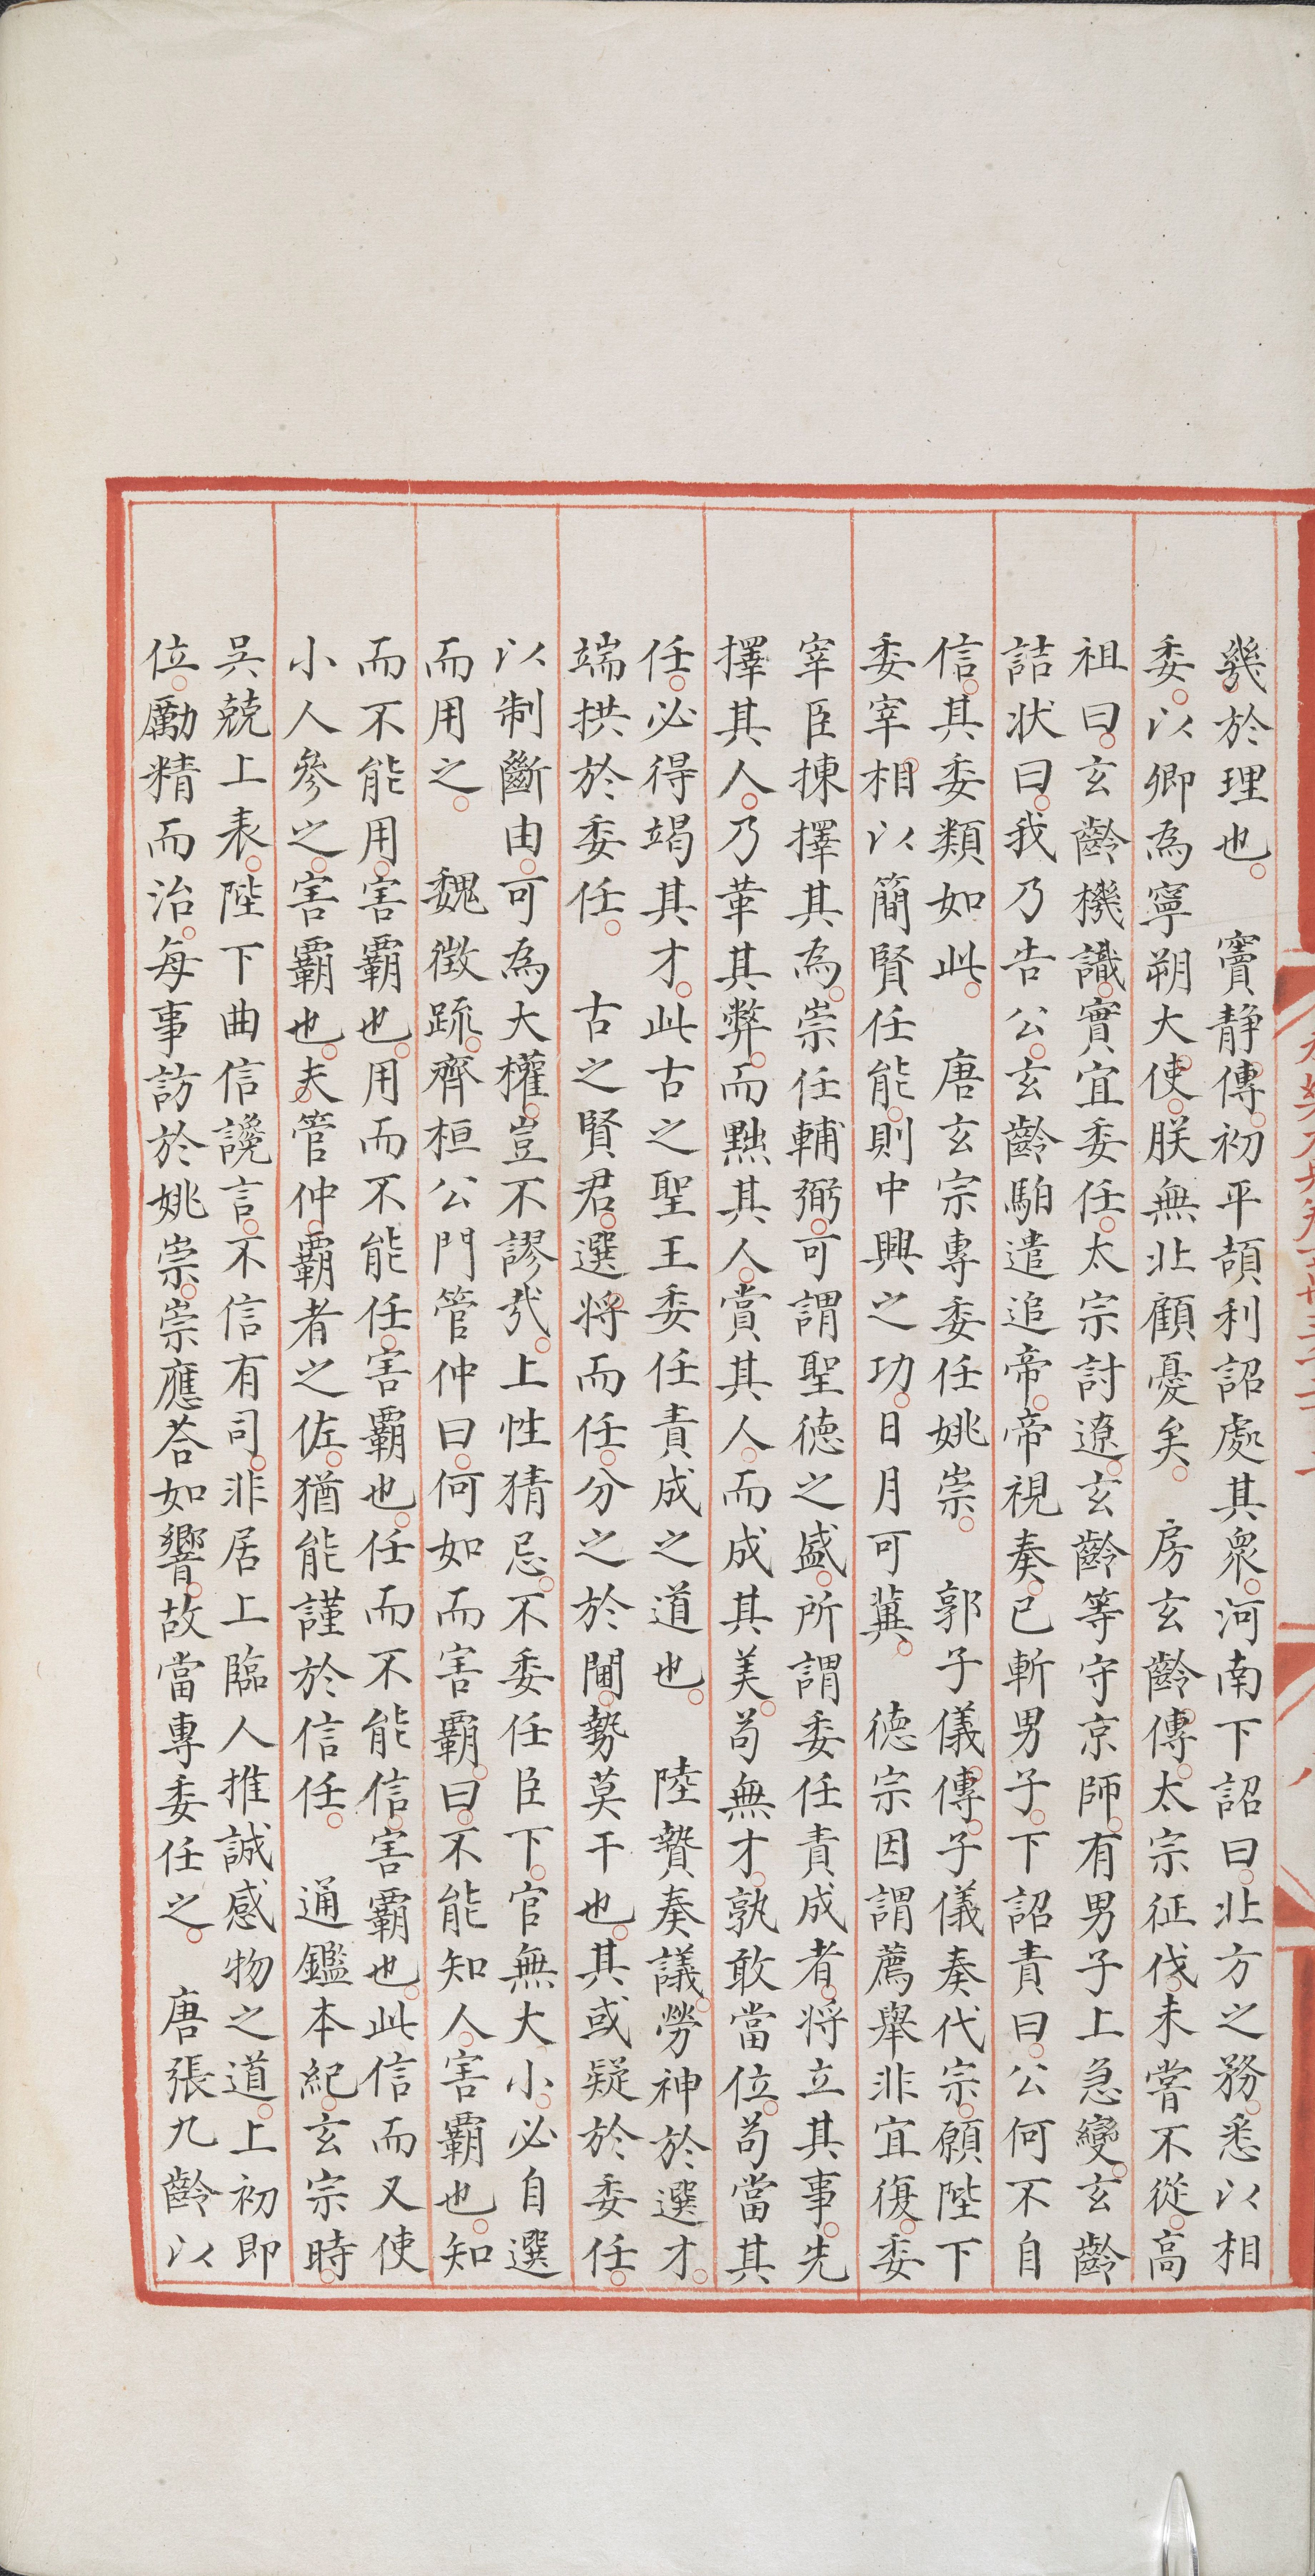 幾於理也。　竇静傳。初平頡利詔處其衆。河南下詔曰。北方之務。悉以相
委。以卿為寧朔大使。朕無北顧憂矣。　房玄齡傳。太宗征伐。未嘗不從。高
祖曰。玄齡機識。實宜委任。太宗討遼。玄齡等守京師。有男子上急變。玄齡
詰狀曰。我乃告公。玄齡馹遣追帝。帝視奏。已斬男子。下詔責曰。公何不自
信。其委類如此。　唐玄宗專委任姚崇。　郭子儀傳。子儀奏代宗。願陛下
委宰相。以簡賢任能。則中興之功。日月可冀。　德宗因謂薦舉非宜。復委
宰臣揀擇其為。崇任輔弼。可謂聖德之盛。所謂委任責成者。將立其事。先
擇其人。乃革其弊。而黜其人。賞其人。而成其美。苟無才。孰敢當位。苟當其
任。必得竭其才。此古之聖王委任責成之道也。　陸贄奏議。勞神於選才。
端拱於委任。　古之賢君。選将而任。分之於閫。勢莫干也。其或疑於委任。
以制斷由。可為大權。豈不謬㢤。上性猜忌。不委任臣下。官無大小。必自選
而用之。　魏徵疏。齊桓公門管仲曰。何如而害霸。曰。不能知人。害霸也。知
而不能用。害霸也。用而不能任。害霸也。任而不能信。害霸也。此信而又使
小人參之。害霸也。夫管仲。霸者之佐。猶能謹於信任。　通鑑本紀。玄宗時。
吳兢上表。陛下曲信讒言。不信有司。非居上臨人推誠感物之道。上初即
位。勵精而治。每事訪於姚崇。崇應荅如響。故當專委任之。　唐張九齡以